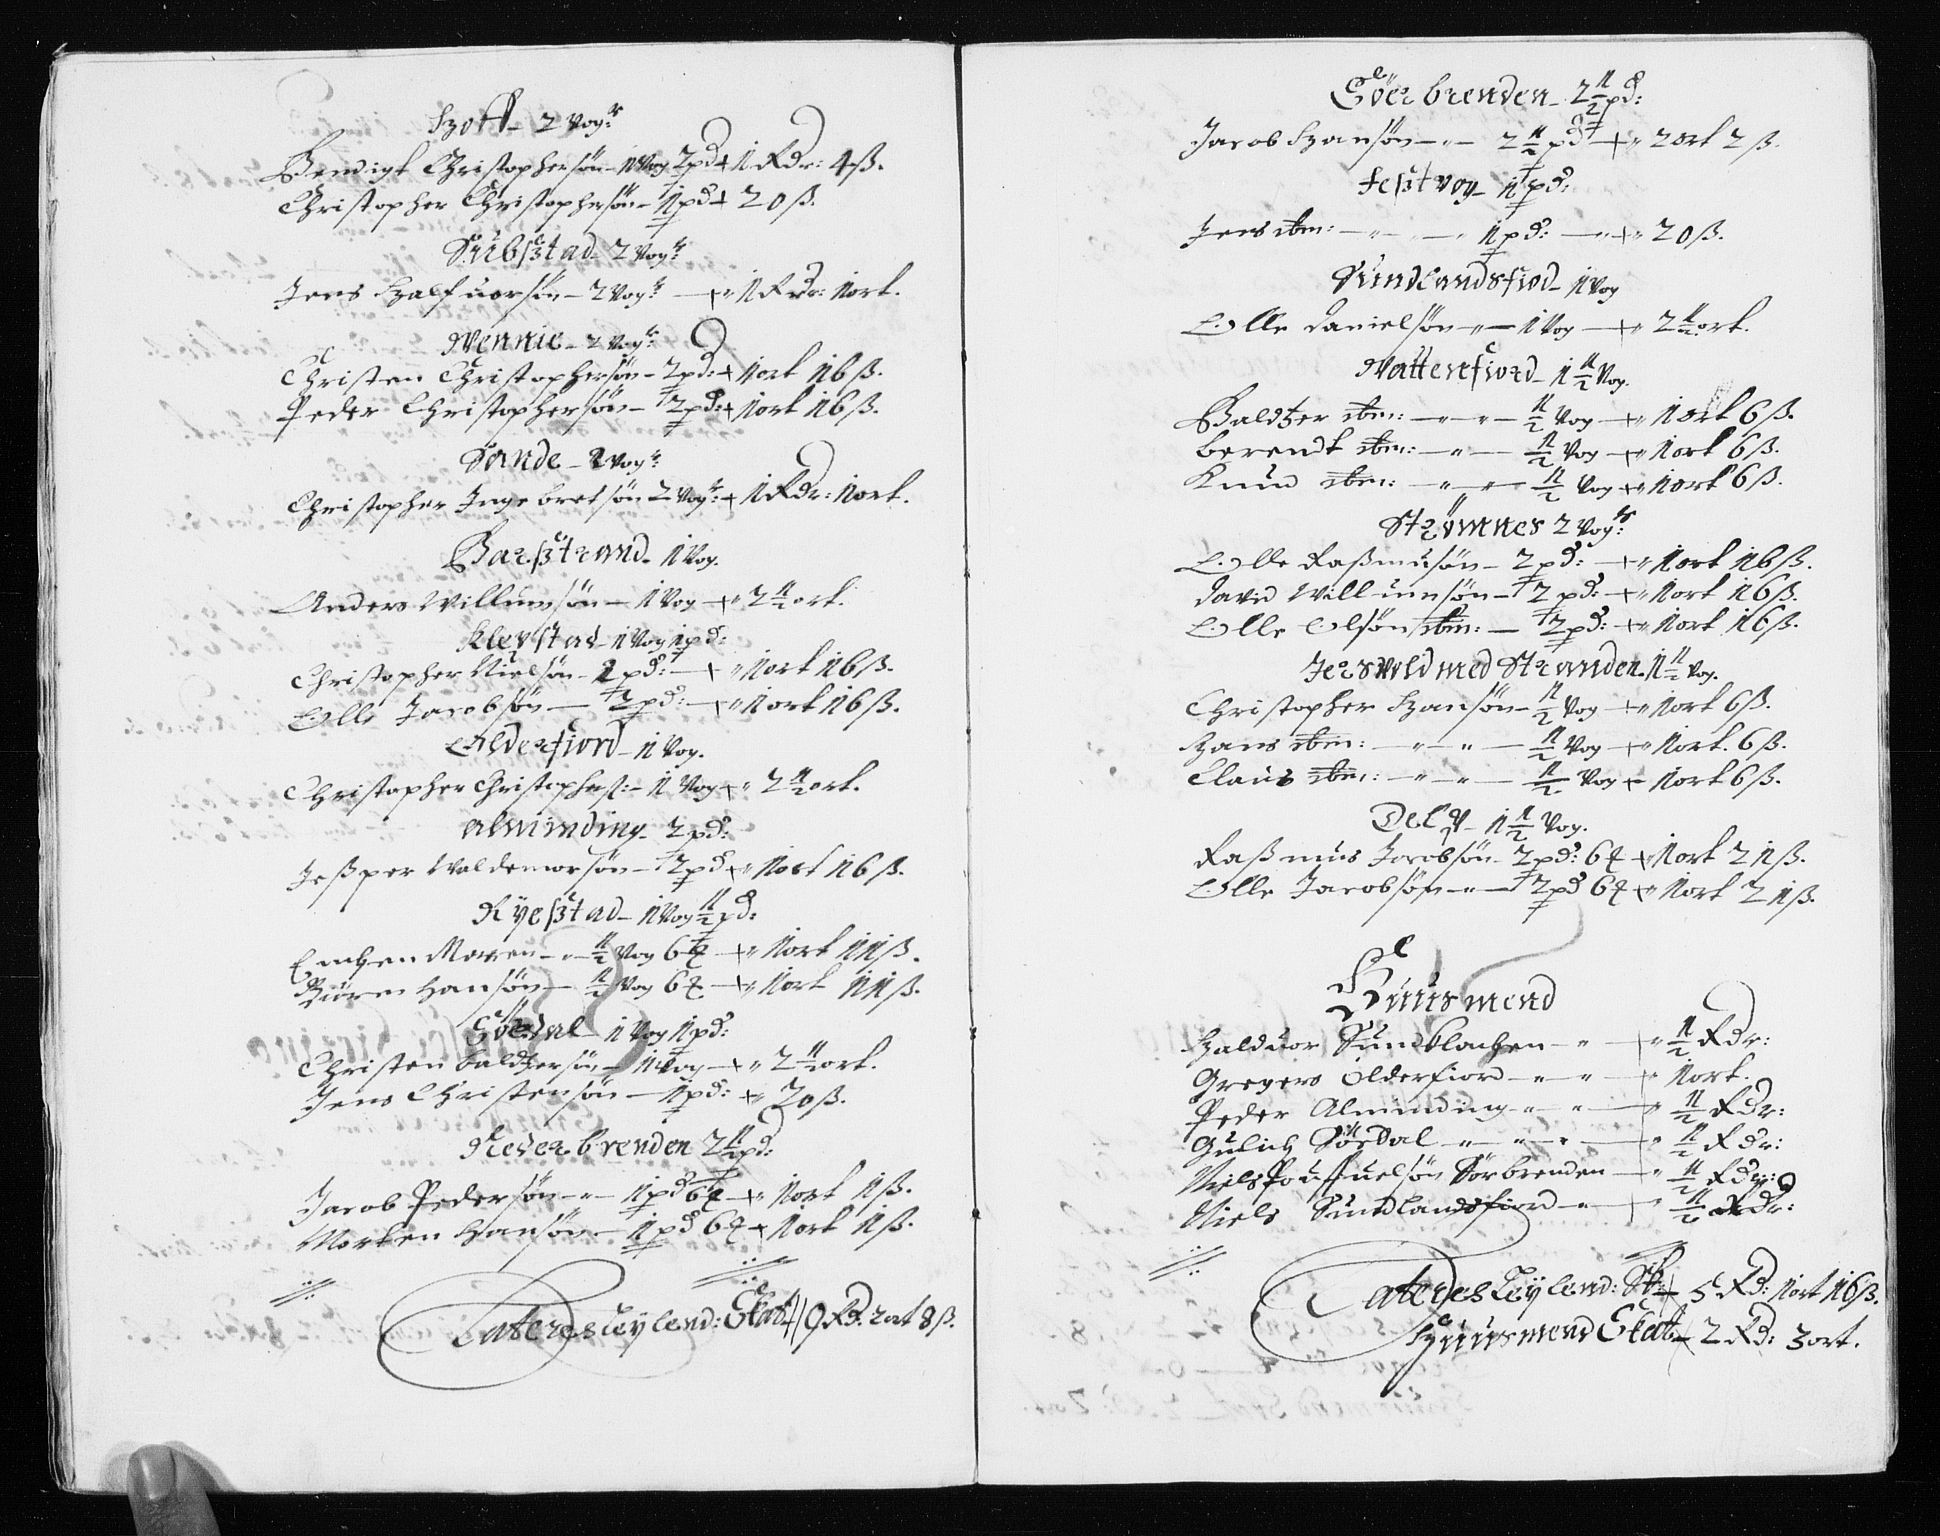 Hoff - 2 Vog:r
Bendigt Christophersøn - 1 Vog 2 pd + 1 Rdr: 4 ß.
Christopher Christophersøn - 1 pd + 20 ß.
Siibstad - 2 Vog:r
Jens Halfuorsøn - 2 Vog:r - + " 1 Rdr: 1 ort.
Wennie - 2 Vog:r
Christen Christophersøn - 2 pd: + 1 ort 16 ß.
Peder Christophersøn - 2 pd: + 1 ort 16 ß.
Sande - 2 Vog:r
Christopher Ingebretsøn 2 Vog:r + 1 Rdr: 1 ort.
Barstrand - 1 Vog.
Anders Willumsøn - 1 Vog - + " 2 1/2 ort.
Kleystad - 1 Vog 1 pd:
Christopher Nielsøn - 2 pd: - + " 1 ort 16 ß.
Olle Jacobsøn - 2 pd: - + " 1 ort 16 ß.
Olderfiord - 1 Vog.
Christopher Christophers: - 1 Vog + " 2 1/2 ort.
Alminding - 2 pd:
Jesper Woldemorsøn - 2 pd + " 1 ort 16 ß.
Ryestad - 1 Vog 1/2 pd:
Enchen Maren - " 1/2 Vog 6 ℔ + " 1 ort 11 ß.
Biören Hansøn - 1/2 Vog 6 ℔ - + " 1 ort 11 ß.
Sördal - 1 Vog 1 pd:
Christen Baltzersøn - 1 Vog - + " 2 1/2 ort.
Jens Christensøn - 1 pd: + " 20 ß.
Nederbrenden 2 1/2 pd:
Jacob Pedersøn - " - 1 pd 6 ℔ - + " 1 ort 1 ß.
Morten Hansøn - 1 pd 6 ℔ + 1 ort 1 ß.
Lateres Leylend: Skat + 9 Rd: 2 ort 8 ß.
Sörbrenden - 2 1/2 pd:
Jacob Hansøn - " - 2 1/2 pd - + " 2 ort 2 ß.
Festvog - 1 pd:
Jens ibm: - " - 1 pd: - " + " 20 ß.
Sundlandsfiord - 1 Vog
Olle Danielsøn - " - 1 Vog - + " 2 1/2 ort.
Wattenfiord - 1 1/2 Vog.
Baldtzer ibm: - " - " - 1/2 Vog - + " 1 ort 6 ß.
Berendt ibm: - " - 1/2 Vog - + " 1 ort 6 ß.
Knud ibm: - " - " - 1/2 Vog + " 1 ort 6 ß.
Strömnes 2 Vog:r
Olle Rasmusøn - 2 pd: - + " 1 ort 16 ß.
David Willumsøn - 2 pd: - + " 1 ort 16 ß.
Olle Olsøn ibm: - 2 pd: - + " 1 ort 16 ß.
Jersvold med Stranden - 1 1/2 Vog.
Christopher Hansøn - 1/2 Vog - + " 1 ort 6 ß.
Hans ibm: - " - " - 1/2 Vog - + " 1 ort. 6 ß.
Claus ibm: - " - " - 1/2 Vog + - 1 ort 6 ß.
Delp - 1 1/2 Vog.
Rasmus Jacobsøn - 2 pd: 6 ℔ + " 1 ort 21 ß.
Olle Jacobsøn - " - 2 pd 6 ℔ + " 1 ort 21 ß.
Huusmend
Halduor Sundklachen - " - + " 1/2 Rdr:
Gregers Olderfiord - " - " - + " 1 ort.
Peder Alminding " - " - + " 1/2 Rdr:
Gulich Sördal " - " - " - + " 1/2 Rdr:
Niels Sörbrenden - + " 1/2 Rdr:
Niels Sundlandsfiord - " - + " 1/2 Rdr:
Lateres Leylend: Sk: + 5 Rd: 1 ort 16 ß.
Huusmend Skat - 2 Rd: 3 ort.